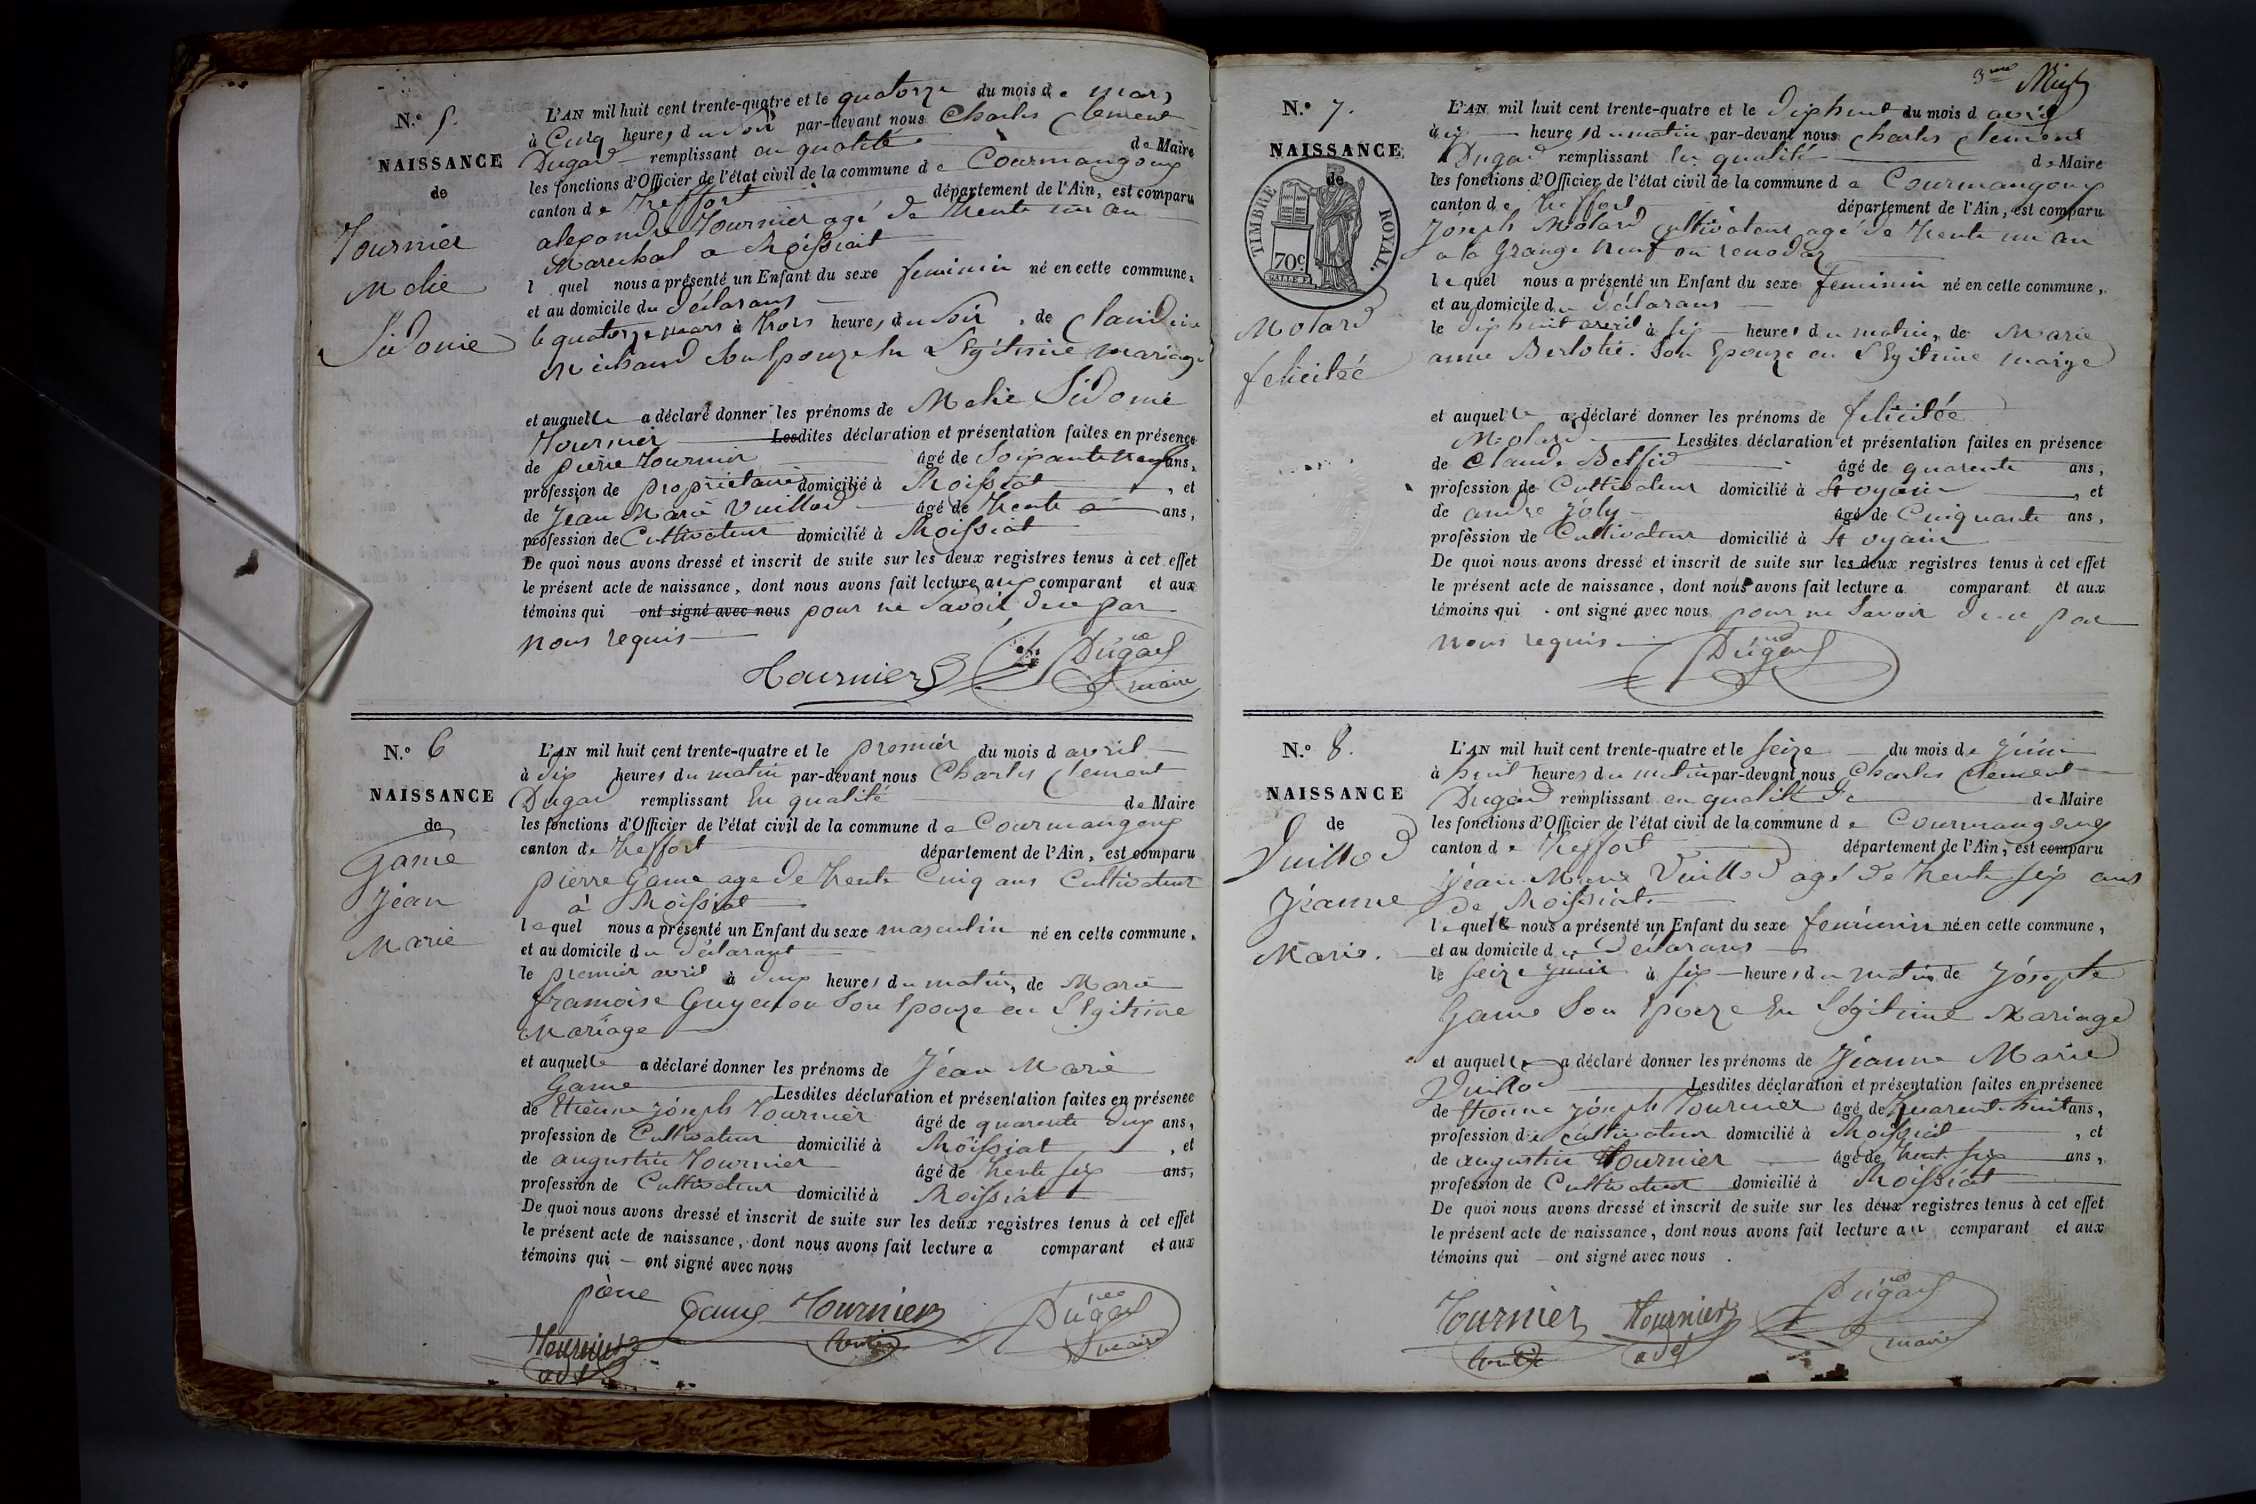 N.º 5.
NAISSANCE
de
Tournier
Melie
Sidonie
L'AN mil huit cent trente-quatre et le quatorze du mois de mars
à Cinq heures du soir par-devant nous Charles Clement
Dugad remplissant en qualité de Maire
les fonctions d'Officier de l'état civil de la commune de Courmangoux
canton de Treffort département de l'Ain, est comparu
alexandre Tournier agé de trente un an
Marechal a Roissiat
l quel nous a présenté un Enfant du sexe feminin né en cette commune,
et au domicile du déclarans
le quatorze mars à trois heures du soir, de Claudine
Michaud son epouze en Légitime mariage
et auquelle a déclaré donner les prénoms de Melie Sidonie
Tournier Lesdites déclaration et présentation faites en présence
de pierre Tournier âgé de Soixante neuf ans,
profession de propriétaire domicilié à Roissiat, et
de Jean Marie Vuillod âgé de trente ans,
profession de Cultivateur domicilié à Roissiat
De quoi nous avons dressé et inscrit de suite sur les deux registres tenus à cet effet
le présent acte de naissance, dont nous avons fait lecture aux comparant et aux
témoins qui ont signé avec nous pour ne savoir de ce par
nous requis
Tournier Dugad
maire
N.º 6
NAISSANCE
de
Game
Jéan
Marie
L'AN mil huit cent trente-quatre et le premier du mois d avril
à dix heures du matin par-devant nous Charles Clement
Dugad remplissant En qualité de Maire
les fonctions d'Officier de l'état civil de la commune de Courmangoux
canton de Treffort département de l'Ain, est comparu
pierre Game age de trente Cinq ans Cultivateur
à Roissiat
lequel nous a présenté un Enfant du sexe masculin né en cette commune,
et au domicile du déclarant
le premier avril à deux heures du matin, de Marie
françoise Guyenon son epouze en Légitime
Mariage
et auquelle a déclaré donner les prénoms de Jéan Marie
Game Lesdites déclaration et présentation faites en présence
de Etienne Joseph Tournier âgé de quarente deux ans,
profession de Cultivateur domicilié à Roissiat, et
de augustin Tournier âgé de trente six ans,
profession de Cultivateur domicilié à Roissiat
De quoi nous avons dressé et inscrit de suite sur les deux registres tenus à cet effet
le présent acte de naissance, dont nous avons fait lecture a comparant et aux
témoins qui ont signé avec nous
père Game Tournier Dugad
Tournier maire
adj
3me
N.º 7.
NAISSANCE
de
TIMBRE ROYAL.
70c.
Molard
felicitée
L'AN mil huit cent trente-quatre et le dix huit du mois d avril
à heures du matin par-devant nous Charles Clement
Dugad remplissant En qualité de Maire
les fonctions d'Officier de l'état civil de la commune de Courmangoux
canton de Treffort département de l'Ain, est comparu
Joseph Molard Cultivateur agé de trente un an
a la Grange neuf ou renodar
lequel nous a présenté un Enfant du sexe feminin né en cette commune,
et au domicile du déclarans
le dix huit avril à six heures du matin, de Marie
anne Berlotié son Epouze en Légitime mariage
et auquelle a déclaré donner les prénoms de felicitée
Molard Lesdites déclaration et présentation faites en présence
de Claude âgé de quarente ans,
profession de Cultivateur domicilié à St oyain, et
de andré Joly âgé de Cinquante ans,
profession de Cultivateur domicilié à St oyain
De quoi nous avons dressé et inscrit de suite sur les deux registres tenus à cet effet
le présent acte de naissance, dont nous avons fait lecture a comparant et aux
témoins qui ont signé avec nous pour ne savoir de ce par
nous requis
Dugad
N.º 8.
NAISSANCE
de
Vuillod
Jéanne
Marie.
L'AN mil huit cent trente-quatre et le seize du mois de Juin
à huit heures du matin par-devant nous Charles Clement
Dugad remplissant en qualité de de Maire
les fonctions d'Officier de l'état civil de la commune de Courmangoux
canton de Treffort département de l'Ain, est comparu
Jéan Marie Vuillod agé de trente six ans
de Roissiat
lequelle nous a présenté un Enfant du sexe feminin né en cette commune,
et au domicile du déclarans
le seize Juin à six heures du matin, de Jósepte
Game son Epouze En Légitime Mariage
et auquelle a déclaré donner les prénoms de Jéanne Marie
Vuillod Lesdites déclaration et présentation faites en présence
de Etienne Joseph Tournier âgé de quarente huit ans,
profession de cultivateur domicilié à Roissiat, et
de augustin Tournier âgé de trent six ans,
profession de Cultivateur domicilié à Roissiat
De quoi nous avons dressé et inscrit de suite sur les deux registres tenus à cet effet
le présent acte de naissance, dont nous avons fait lecture au comparant et aux
témoins qui ont signé avec nous.
Tournier Tournier Dugad
adj maire